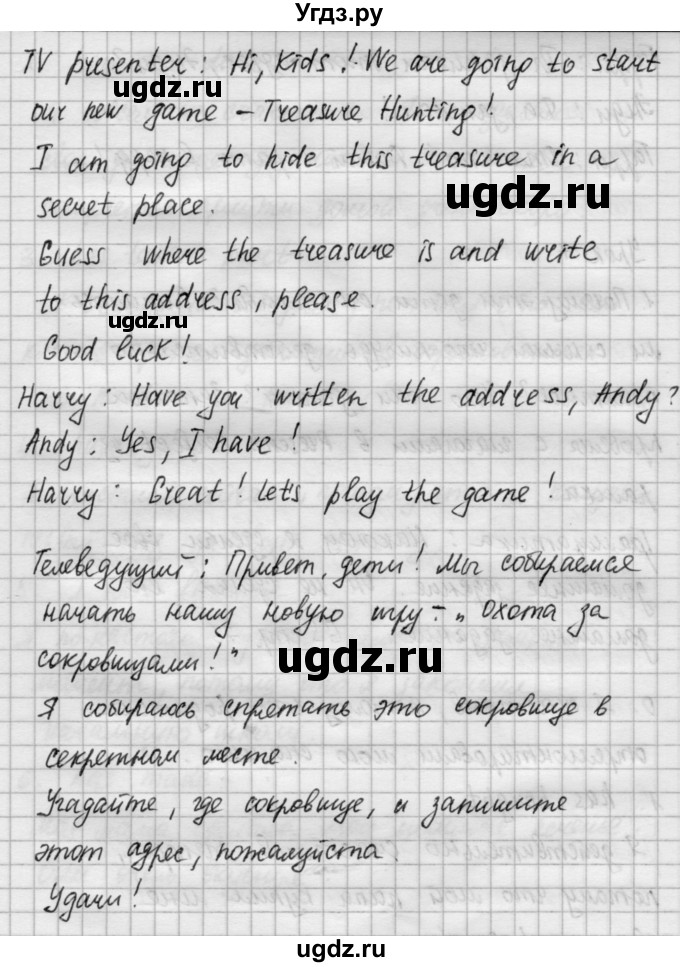 Угдз.ру
TV presenter: Hi, Kids! We are going to start
our new game – Treasure Hunting!
I am going to hide this treasure in a
secret place.
Guess where the treasure is and write
to this address, please.
Good luck!
Harry: Have you written the address, Andy?
Andy: Yes, I have!
Harry: Great! Let's play the game!
Телеведущий: Привет, дети! Мы собираемся
начать нашу новую игру – „Охота за
сокровищами!"
Я собираюсь спрятать это сокровище в
секретном месте.
Угадайте, где сокровище, и запишите
этот адрес, пожалуйста.
Удачи!
ugdz.ru
ugdz.ru
ugdz.ru
ugdz.ru
ugdz.ru